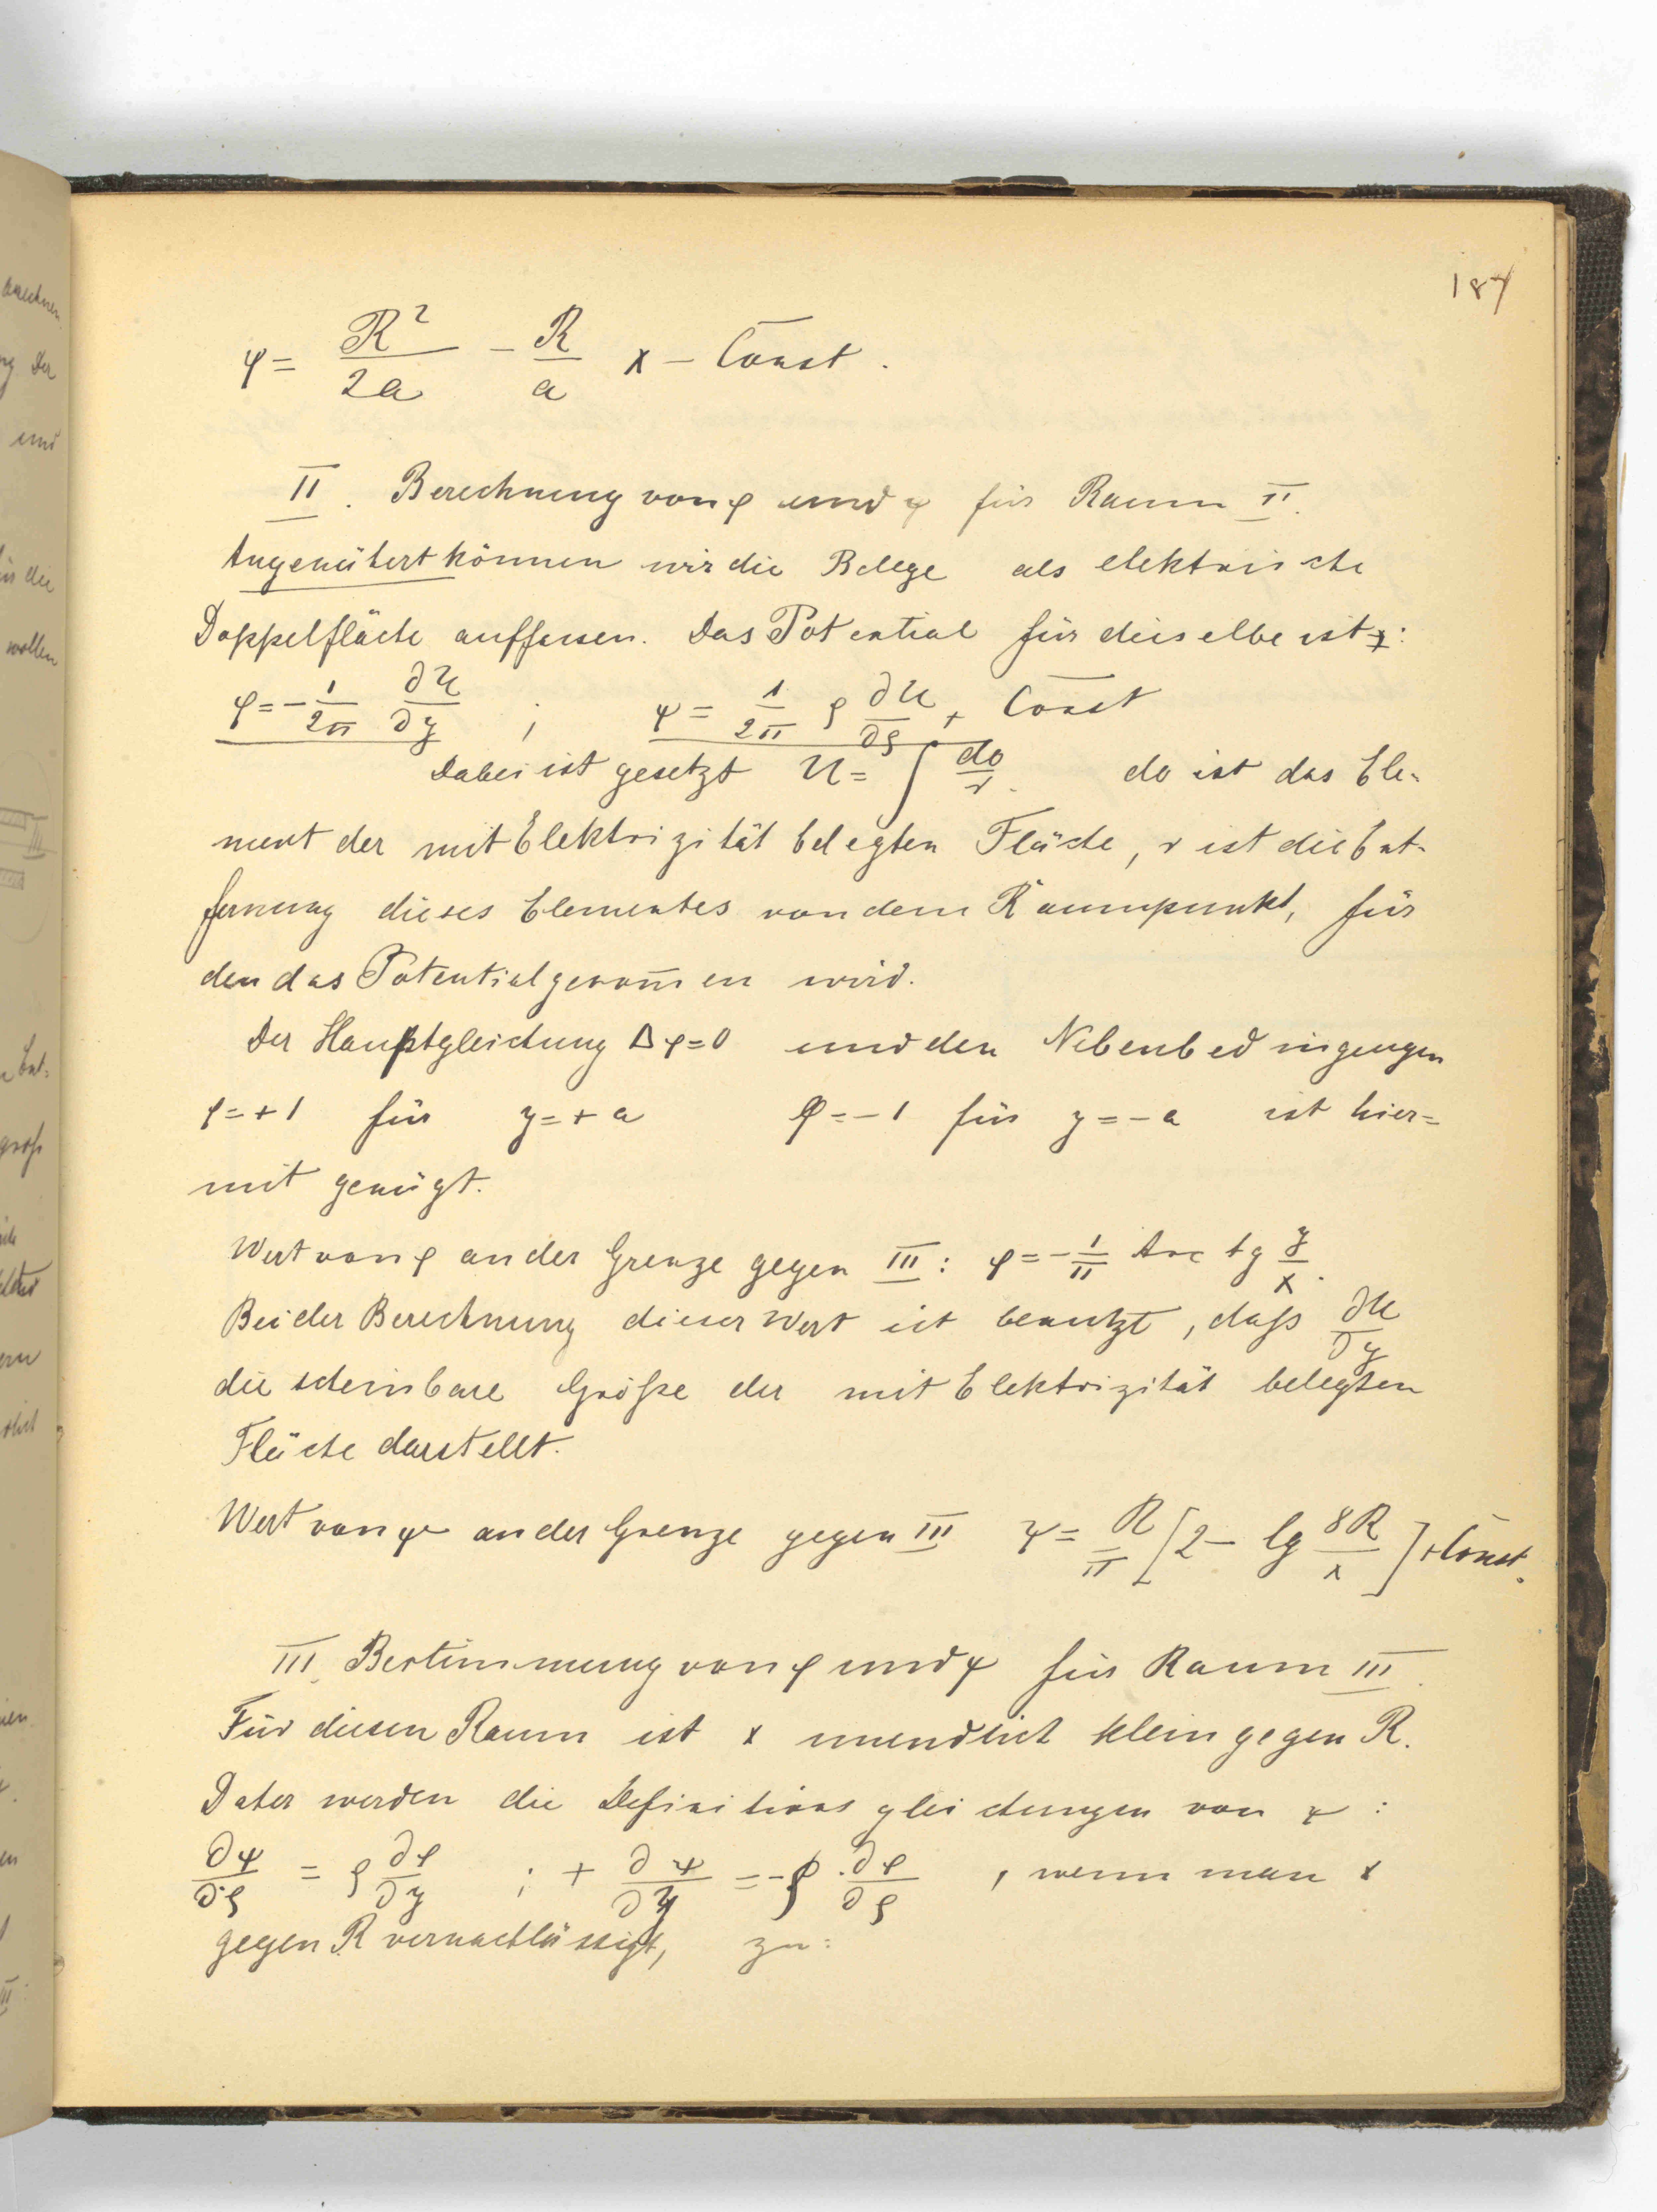 187
ψ = R²/2a − R/a x − Const.
II. Berechnung von φ und ψ für Raum II.
Angenähert können wir die Belege als elektrische
Doppelfläche auffassen. Das Potential für dieselbe ist:
φ = − 1/2π ∂U/∂y ; ψ = 1/2π ρ ∂U/∂ρ + Const
Dabei ist gesetzt U = ∫ do/r. do ist das Ele-
ment der mit Elektrizität belegten Fläche, r ist die Ent-
fernung dieses Elementes von dem Raumpunkt, für
den das Potential genom̄en wird.
Der Hauptgleichung Δφ=0 und den Nebenbedingungen
φ=+1 für y=+a φ=−1 für y=−a ist hier=
mit genügt.
Wert von φ an der Grenze gegen III: φ = − 1/π Arc tg y/x.
Bei der Berechnung dieser Wert ist benutzt, daß ∂U/∂y
die scheinbare Größe der mit Elektrizität belegten
Fläche darstellt.
Wert von ψ an der Grenze gegen III ψ = R/π [2 − lg 8R/x] + Const.
III. Bestimmung von φ und ψ für Raum III.
Für diesen Raum ist x unendlich klein gegen R.
Daher werden die Definitionsgleichungen von ψ :
∂ψ/∂ρ = ρ ∂φ/∂y ; + ∂ψ/∂y = −ρ · ∂φ/∂ρ , wenn man x
gegen R vernachlässigt, zu: